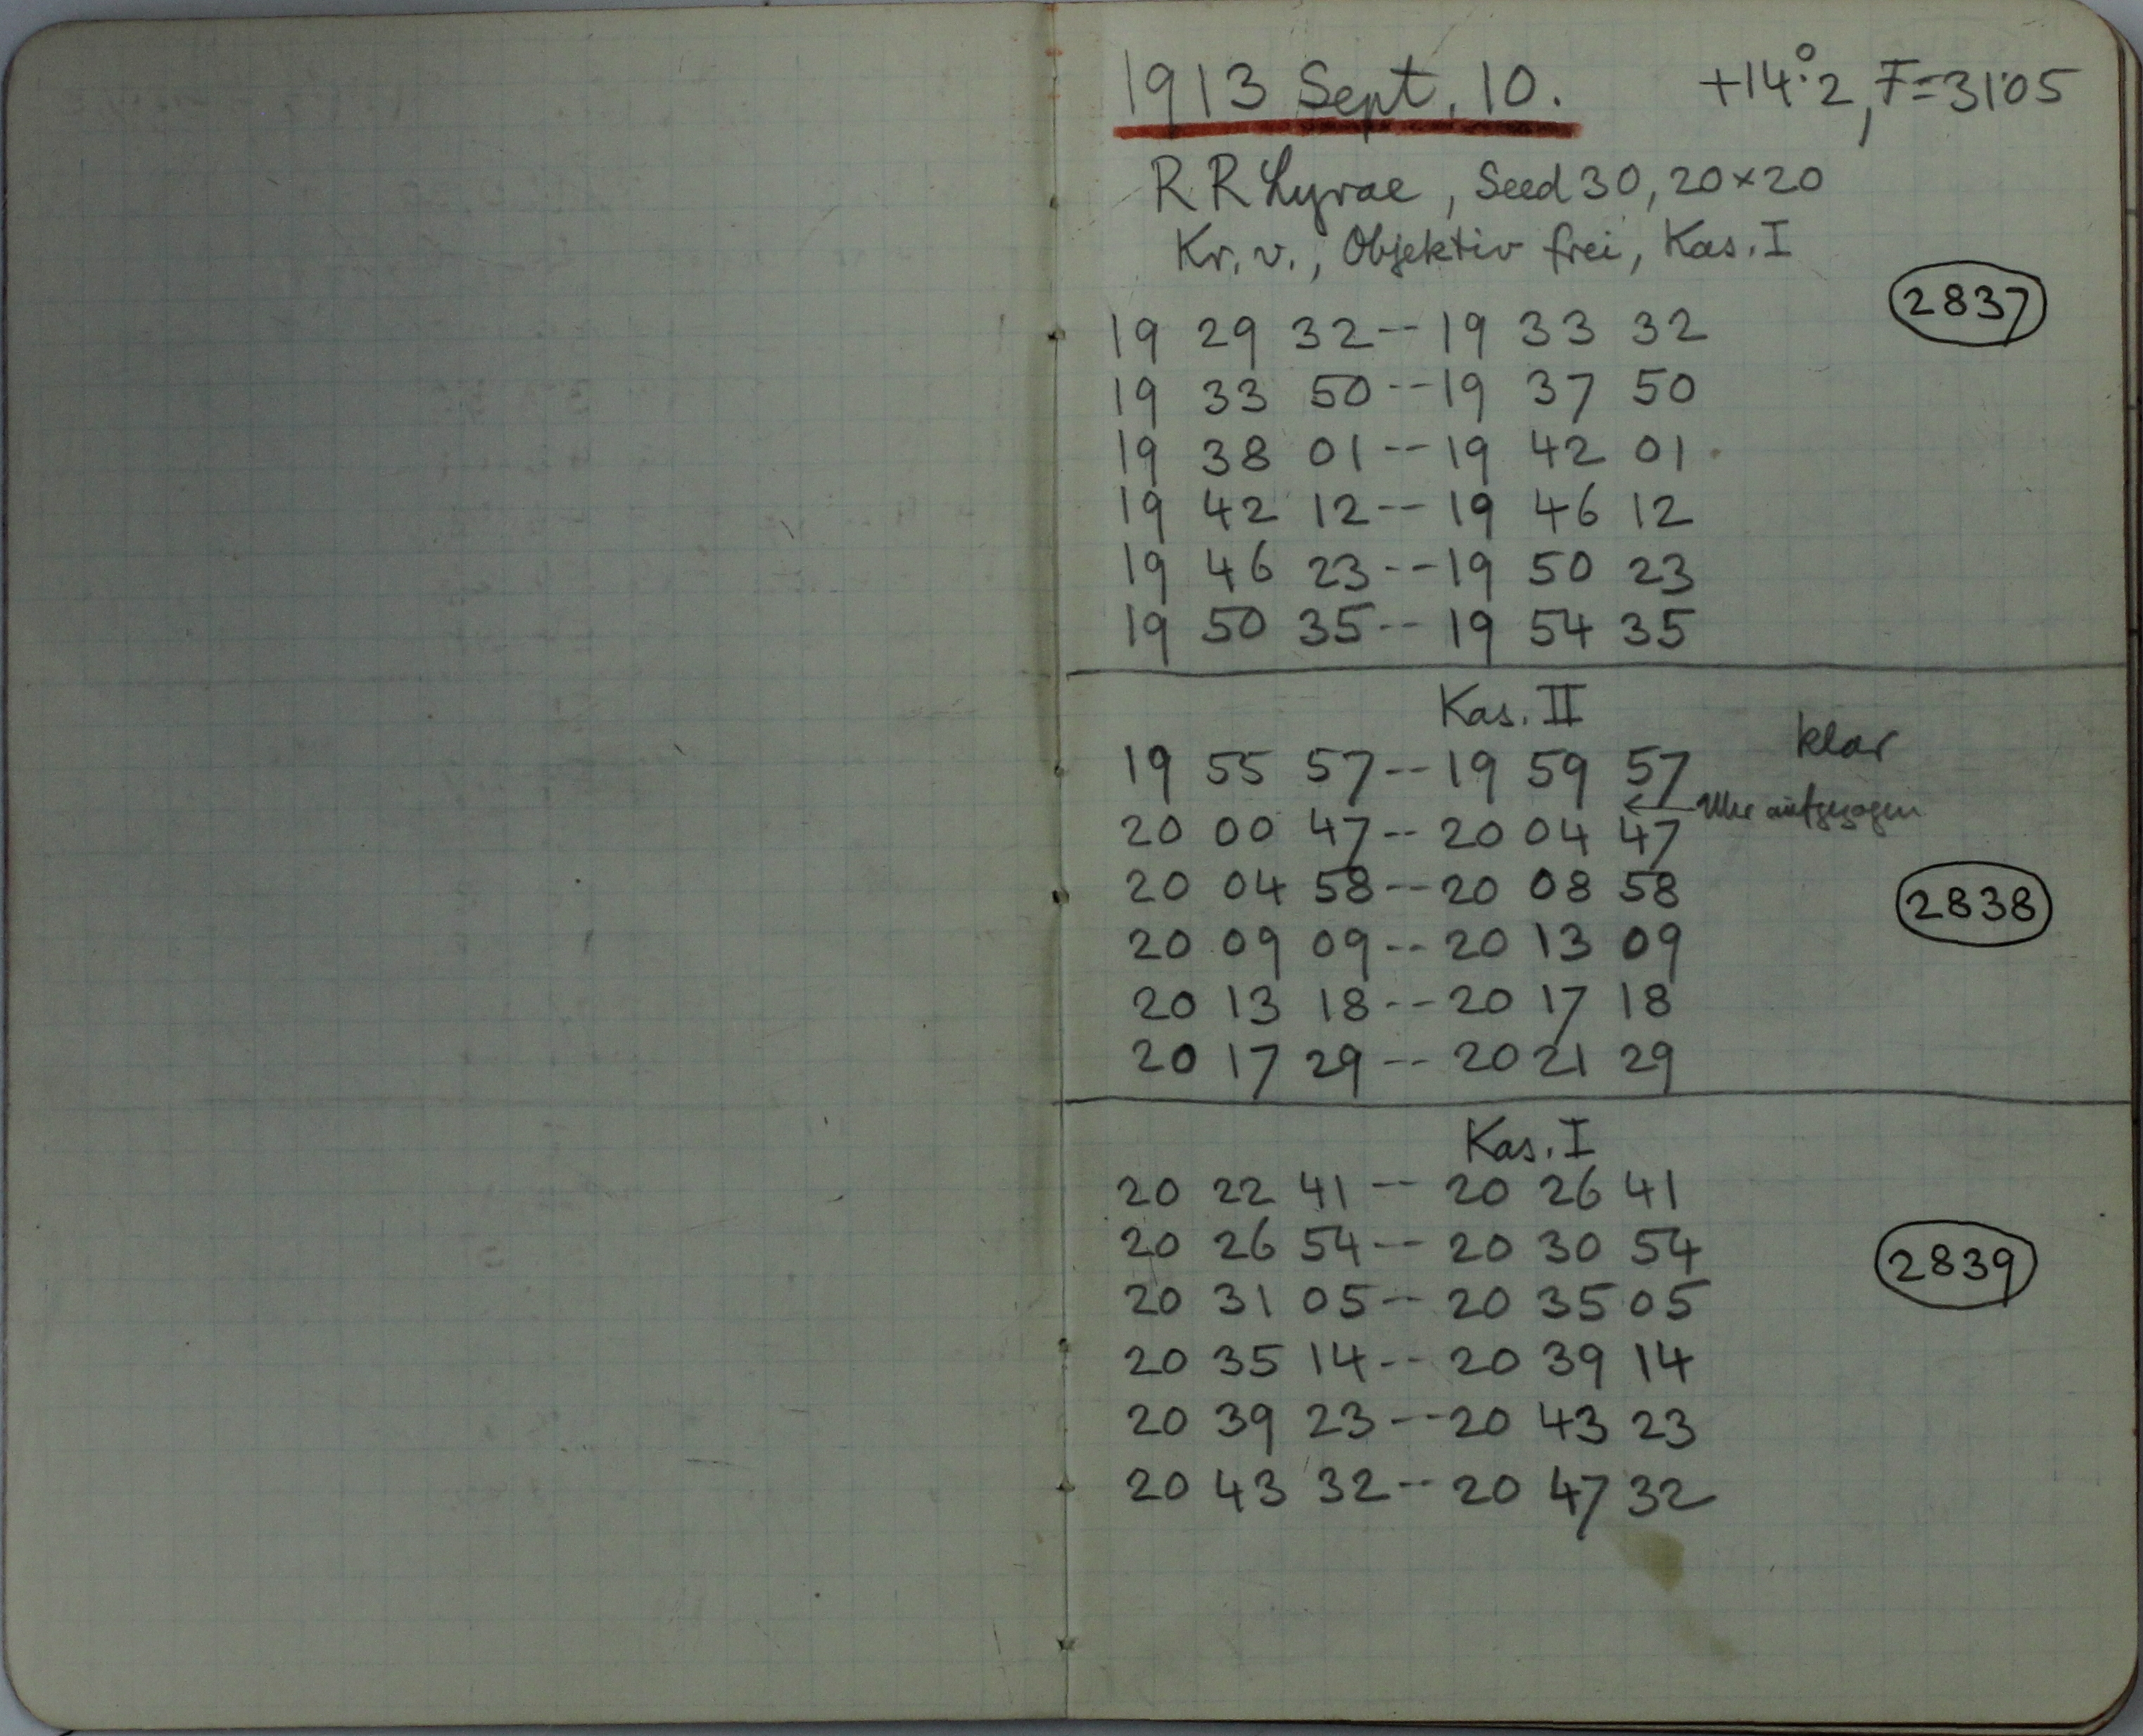 1913 Sept. 10. +14°.2, F=31.05
RR Lyrae, Seed 30, 20×20
Kr. v., Objektiv frei, Kas. I
2837
19 29 32--19 33 32
19 33 50--19 37 50
19 38 01--19 42 01
19 42 12--19 46 12
19 46 23--19 50 23
19 50 35--19 54 35
Kas. II
klar
19 55 57--19 59 57
← Uhr aufgezogen
20 00 47--20 04 47
20 04 58--20 08 58
2838
20 09 09--20 13 09
20 13 18--20 17 18
20 17 29--20 21 29
Kas. I
20 22 41--20 26 41
20 26 54--20 30 54
2839
20 31 05--20 35 05
20 35 14--20 39 14
20 39 23--20 43 23
20 43 32--20 47 32